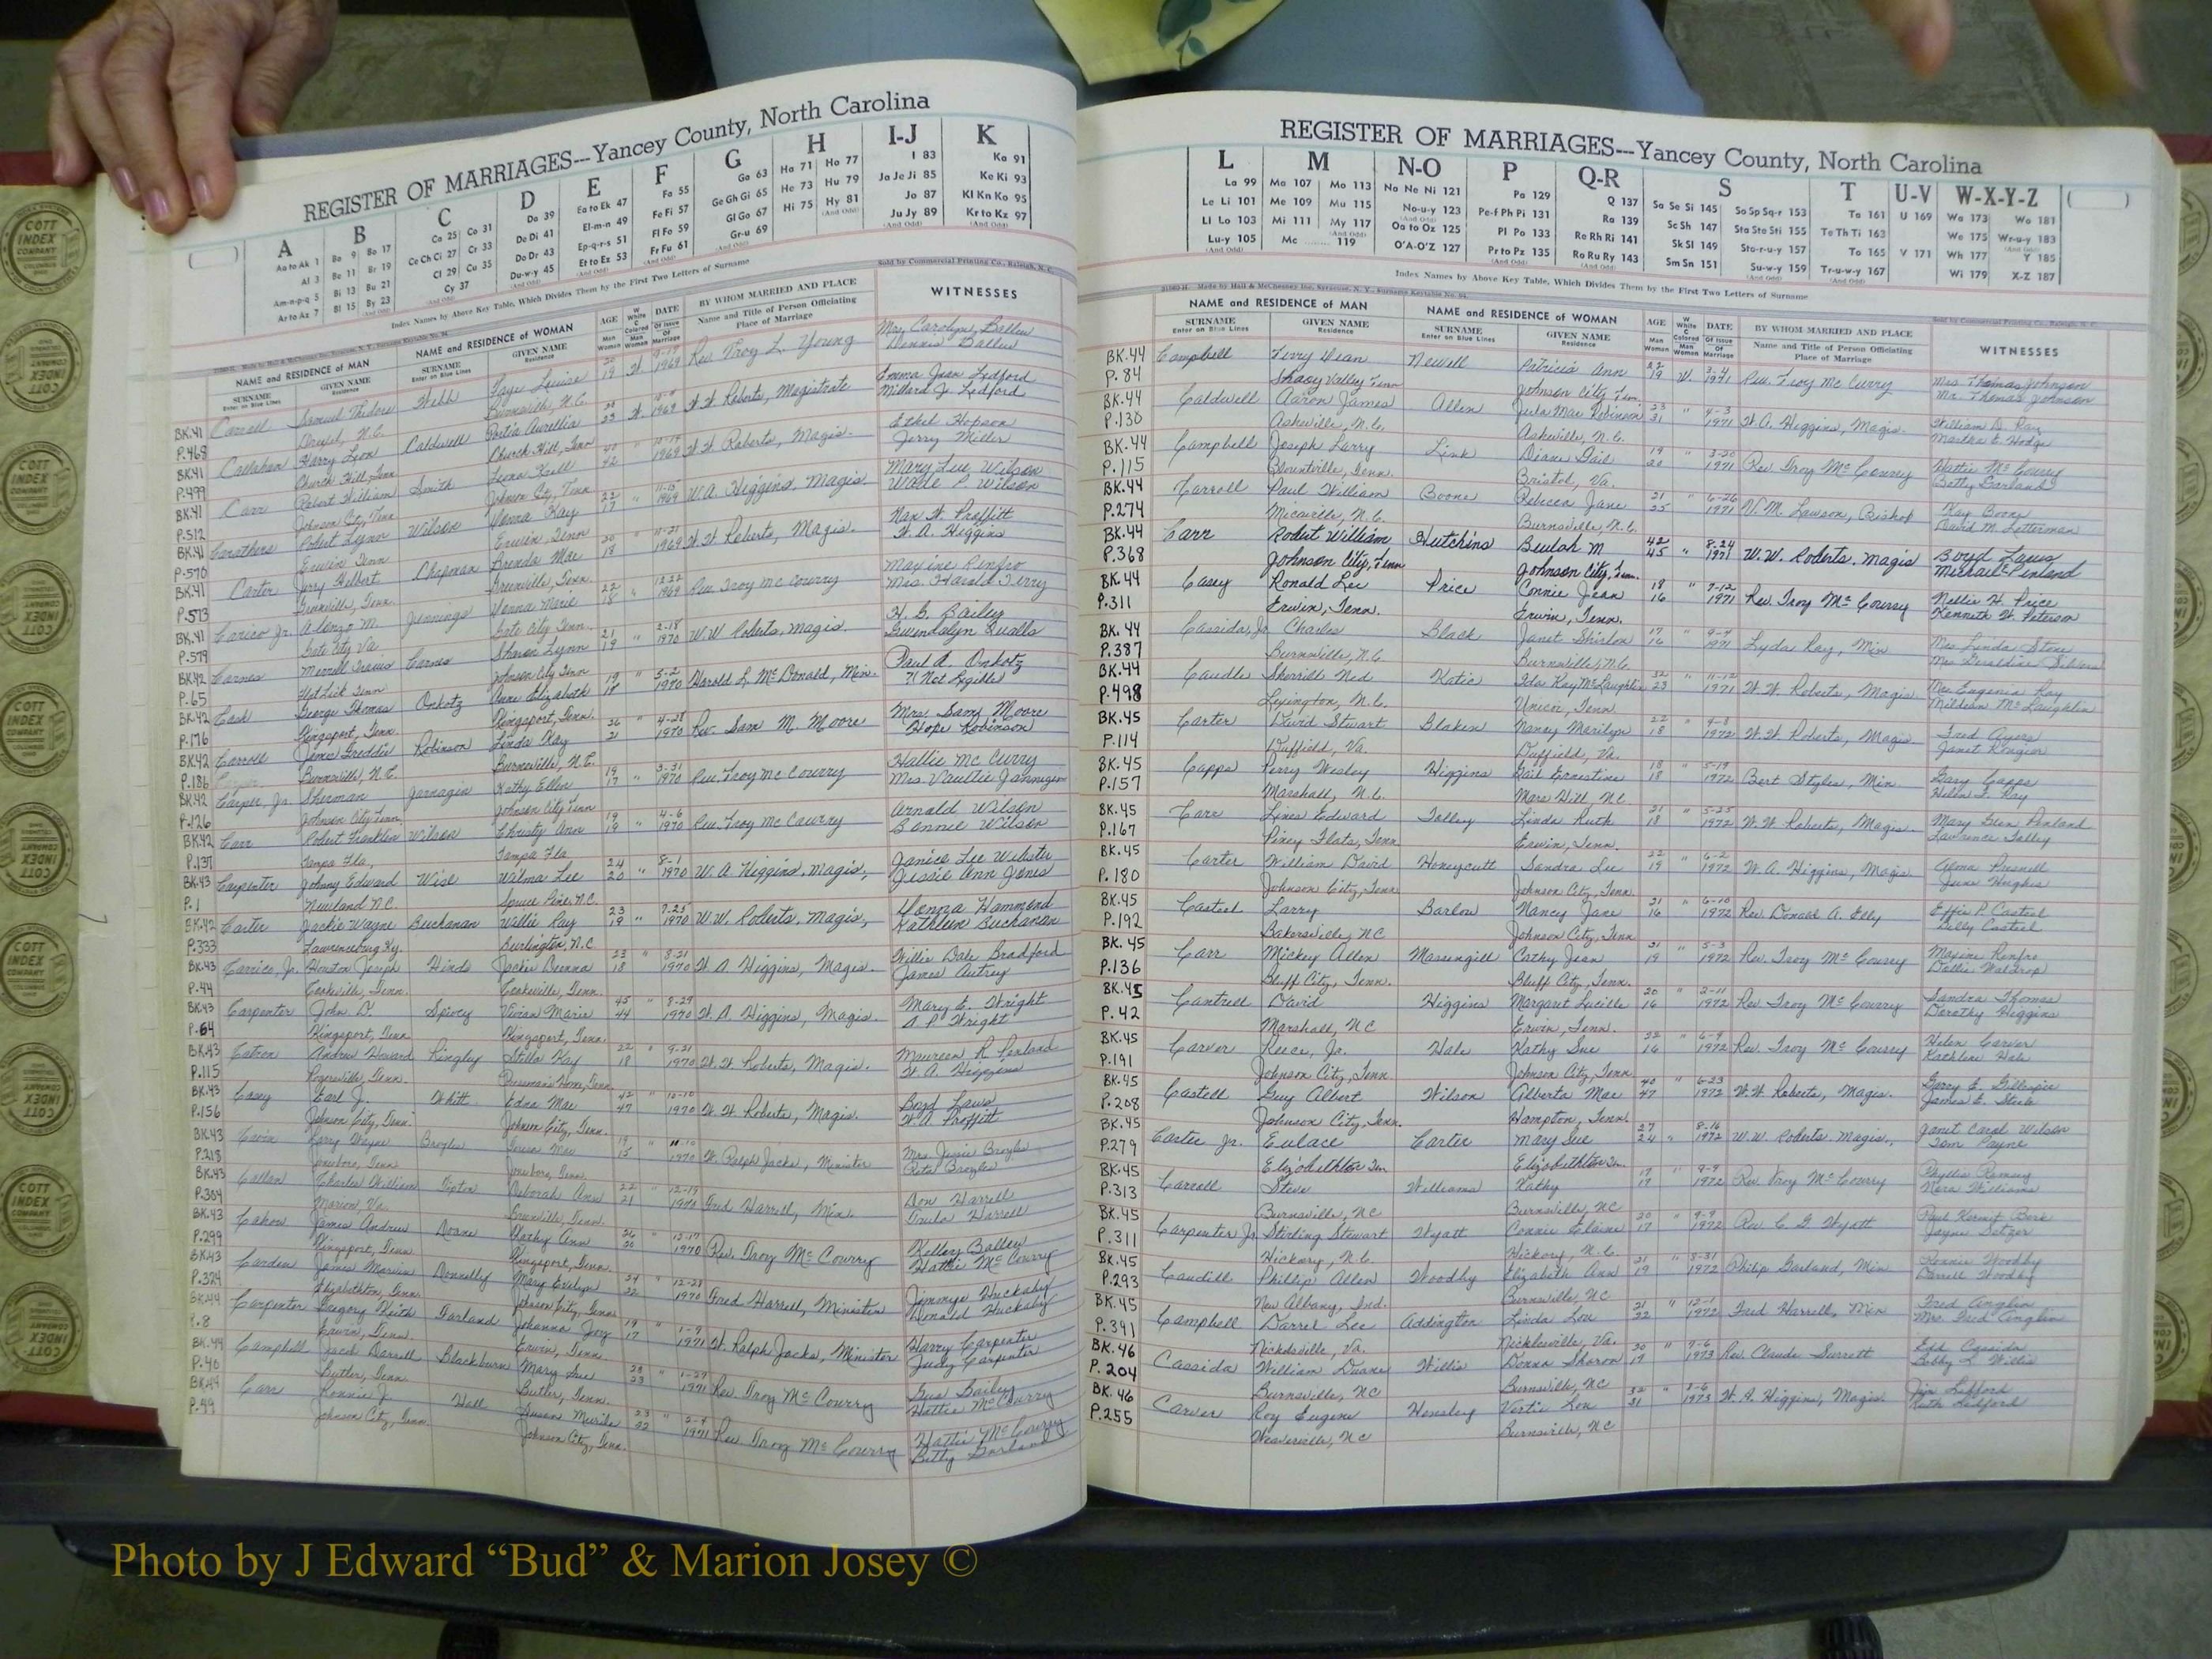 REGISTER OF MARRIAGES---Yancey County, North Carolina
A B C D E F G H I-J K
Aa to Ak 1 Ba 9 Bo 17 Ca 25 Co 31 Da 39 Ea to Ek 47 Fa 55 Ga 63 Ha 71 Ho 77 I 83 Ka 91
Al 3 Be 11 Br 19 Ce Ch Ci 27 Cr 33 De Di 41 El-m-n 49 Fe Fi 57 Ge Gh Gi 65 He 73 Hu 79 Ja Je Ji 85 Ke Ki 93
Am-n-p-q 5 Bi 13 Bu 21 Cl 29 Cu 35 Do Dr 43 Ep-q-r-s 51 Fl Fo 59 Gl Go 67 Hi 75 Hy 81 Jo 87 Kl Kn Ko 95
Ar to Az 7 Bl 15 By 23 Cy 37 Du-w-y 45 Et to Ez 53 Fr Fu 61 Gr-u 69 Ju Jy 89 Kr to Kz 97
Index Names by Above Key Table, Which Divides Them by the First Two Letters of Surname
Sold by Commercial Printing Co., Raleigh, N. C.
NAME and RESIDENCE of MAN NAME and RESIDENCE of WOMAN AGE DATE BY WHOM MARRIED AND PLACE WITNESSES
SURNAME Enter on Blue Lines GIVEN NAME Residence SURNAME Enter on Blue Lines GIVEN NAME Residence Man Woman Name and Title of Person Officiating Place of Marriage
BK.41 Carroll Samuel Webb Faye Louise 19 W 1969 Rev. Troy L. Young Mrs. Carolyn Ballew
P.468 N.C. Burnsville, N.C. Dennis Ballew
BK.41 Callahan Harry Lyon Caldwell Portia 23 W. 1969 W. W. Roberts, Magistrate Emma Jean Ledford
P.499 Church Hill, Tenn Church Hill, Tenn Millard J. Ledford
BK.41 Carr Robert William Smith Leona 42 " 1969 W. W. Roberts, Magis. Ethel Hopson
P.512 Johnson City, Tenn Johnson City, Tenn Jerry Miller
BK.41 Carothers Robert Lynn Wilson Donna Kay 22 17 " 11-15 1969 W. A. Higgins, Magis. Mary Lee Wilson
P.570 Erwin Tenn Erwin Tenn Wade P. Wilson
BK.41 Carter Jerry Chapman Brenda Mae 20 18 " 11-21 1969 W. W. Roberts, Magis. Nax W. Proffitt
P.573 Greenville, Tenn. Greenville, Tenn. W. A. Higgins
BK.41 Carico Jr. Alonzo M. Jennings Donna Marie 22 18 " 12-22 1969 Rev. Troy McCourry Maxine Renfro
P.579 Gate City Va. Gate City Tenn. Mrs. Harold Terry
BK.42 Carnes Merrell Carnes Sharon Lynn 21 19 " 2-18 1970 W. W. Roberts, Magis. H. G. Bailey
P.65 Flat Lick Tenn Johnson City Tenn Gwendolyn Qualls
BK.42 Cash George Thomas Onkotz Anne Elizabeth 19 18 " 5-2 1970 Harold L. McDonald, Min. Paul A. Onkotz
P.176 Kingsport, Tenn. Kingsport, Tenn. ?( Not Legible )
BK.42 Carroll James Freddie Robinson Linda Kay 26 21 " 4-28 1970 Rev. Sam M. Moore Mrs. Sam Moore
P.186 Burnsville, N.C. Burnsville, N.C. Hope Robinson
BK.42 Carper, Jr. Sherman Jarnagin Kathy Ellen 19 17 " 3-31 1970 Rev. Troy McCourry Hallie McCurry
P.126 Johnson City Tenn Johnson City Tenn Mrs. Jarnagin
BK.42 Carr Robert Franklin Wilson Christy Ann 19 19 " 4-6 1970 Rev. Troy McCourry Arnold Wilson
P.137 Tampa Fla., Tampa Fla Bonnie Wilson
BK.43 Carpenter Johnny Edward Wise Wilma Lee 24 20 " 8-1 1970 W. A. Higgins, Magis, Janice Lee Webster
P.1 Newland N.C. Spruce Pine, N.C. Jessie Ann Jones
BK.42 Carter Jackie Wayne Buchanan Willie Ray 23 19 " 7-25 1970 W. W. Roberts, Magis, Donna Hammond
P.333 Lawrenceburg Ky. Burlington, N.C Kathleen Buchanan
BK.43 Carrico, Jr. Houston Joseph Hinds Jackie Deanna 22 18 " 8-21 1970 W. A. Higgins, Magis. Willie Dale Bradford
P.44 Cookeville, Tenn. Cookeville, Tenn. James Autrey
BK.43 Carpenter John D. Spivey Vivian Marie 45 44 " 8-29 1970 W. A. Higgins, Magis. Mary E. Wright
P.64 Kingsport, Tenn Kingsport, Tenn. A. P. Wright
BK.43 Catron Andrew Howard Ringley Stella Kay 22 18 " 9-21 1970 W. W. Roberts, Magis. Maureen R. Penland
P.115 Rogersville, Tenn. W. A. Higgins
BK.43 Casey Earl J. Whitt Edna Mae 42 47 " 10-10 1970 W. W. Roberts, Magis. Boyd Laws
P.156 Johnson City, Tenn. Johnson City, Tenn. W. A. Proffitt
BK.43 Larry Wayne Broyles Mae 19 15 " 11-10 1970 W. Ralph Jacks, Minister Mrs. Jessie Broyles
P.218 Jonesboro, Tenn Jonesboro, Tenn Broyles
BK.43 Callan Charles William Tipton Deborah Ann 22 21 " 12-19 1970 Fred Harrell, Min. Don Harrell
P.304 Marion, Va. Greenville, Tenn. Harrell
BK.43 Cahow James Andrew Doane Kathy Ann 26 20 " 12-17 1970 Rev. Troy McCourry Kelley Ballew
P.299 Kingsport, Tenn Kingsport, Tenn. Hattie McCourry
BK.43 Carden James Marvin Donnelly Mary Evelyn 24 22 " 12-28 1970 Fred Harrell, Minister Jimmye Huckaby
P.324 Elizabethton, Tenn. Johnson City, Tenn. Donald Huckaby
BK.44 Carpenter Gregory Keith Garland Johanna Joy 19 17 " 1-9 1971 W. Ralph Jacks, Minister Harry Carpenter
P.8 Erwin, Tenn. Erwin, Tenn. Judy Carpenter
BK.44 Campbell Jack Darrell Blackburn Mary Sue 28 23 " 1-29 1971 Rev. Troy McCourry Gus Bailey
P.40 Butler, Tenn. Butler, Tenn. Hattie McCourry
BK.44 Carr Ronnie J. Hall Susan 23 22 " 2-4 1971 Rev. Troy McCourry Hattie McCourry
P.49 Johnson City, Tenn. Johnson City, Tenn. Betty Garland
REGISTER OF MARRIAGES---Yancey County, North Carolina
L M N-O P Q-R S T U-V W-X-Y-Z
La 99 Ma 107 Mo 113 Na Ne Ni 121 Pa 129 Q 137 Sa Se Si 145 So Sp Sq-r 153 Ta 161 U 169 Wa 173 Wo 181
Le Li 101 Me 109 Mu 115 No-u-y 123 Pe-f Ph Pi 131 Ra 139 Sc Sh 147 Sta Ste Sti 155 Te Th Ti 163 We 175 Wr-u-y 183
Ll Lo 103 Mi 111 My 117 Oa to Oz 125 Pl Po 133 Re Rh Ri 141 Sk Sl 149 Sto-r-u-y 157 To 165 V 171 Wh 177 Y 185
Lu-y 105 Mc 119 O'A-O'Z 127 Pr to Pz 135 Ro Ru Ry 143 Sm Sn 151 Su-w-y 159 Tr-u-w-y 167 Wi 179 X-Z 187
Index Names by Above Key Table, Which Divides Them by the First Two Letters of Surname
NAME and RESIDENCE of MAN NAME and RESIDENCE of WOMAN AGE DATE BY WHOM MARRIED AND PLACE WITNESSES
SURNAME Enter on Blue Lines GIVEN NAME Residence SURNAME Enter on Blue Lines GIVEN NAME Residence Man Woman Name and Title of Person Officiating Place of Marriage
BK.44 Campbell Terry Dean Newell Patricia Ann 22 19 W. 3-4 1971 Rev. Troy McCurry Mrs. Thomas Johnson
P.84 Stacy Valley Tenn Johnson City, Ten. Mr. Thomas Johnson
BK.44 Caldwell Aaron James Allen Jula Mae Robinson 23 31 " 4-3 1971 W. A. Higgins, Magis. William D. Ray
P.130 Asheville, N.C. Asheville, N.C. Martha E. Hodge
BK.44 Campbell Joseph Larry Link Diane Gail 19 20 " 3-20 1971 Rev. Troy McCourry Hattie McCourry
P.115 Blountville, Tenn. Bristol, Va. Betty Garland
BK.44 Carroll Paul William Boone Rebecca Jane 21 25 " 6-26 1971 W. M. Lawson, Bishop Kay Boone
P.274 Micaville, N.C. Burnsville, N.C. David M. Letterman
BK.44 Carr Robert William Hutchins Beulah M 42 45 " 8-24 1971 W. W. Roberts, Magis Boyd Laws
P.368 Johnson City, Tenn Johnson City, Tenn. Michael Penland
BK.44 Casey Ronald Lee Price Connie Jean 18 16 " 7-12 1971 Rev. Troy McCourry Nellie H. Price
P.311 Erwin, Tenn. Erwin, Tenn. Kenneth W. Peterson
BK.44 Cassida, Jr. Charles Black Janet Shirlon 17 16 " 9-4 1971 Lyda Ray, Min Mrs Linda Stone
P.387 Burnsville, N.C Burnsville, N.C. Mrs Geraldine Silvers
BK.44 Caudle Sherrill Ned Katie Ida Kay McLaughlin 32 23 " 11-12 1971 W. W. Roberts, Magis Mrs Eugenia Ray
P.498 Lexington, N.C. Unicoi, Tenn. Mildean McLaughlin
BK.45 Carter David Stuart Blaken Nancy Marilyn 22 18 " 4-8 1972 W. W. Roberts, Magis. Fred Ayers
P.114 Duffield, Va. Duffield, Va. Janet
BK.45 Capps Perry Wesley Higgins Gail Ernestine 18 18 " 5-19 1972 Bert Styles, Min Gary Capps
P.157 Marshall, N.C. Mars Hill, N.C. Helen F. Ray
BK.45 Carr Lines Edward Tolley Linda Ruth 21 18 " 5-25 1972 W. W. Roberts, Magis. Mary Glen Penland
P.167 Piney Flats, Tenn. Erwin, Tenn. Lawrence Tolley
BK.45 Carter William David Honeycutt Sandra Lee 22 19 " 6-2 1972 W. A. Higgins, Magis. Alma Presnell
P.180 Johnson City, Tenn. Johnson City, Tenn. June Hughes
BK.45 Casteel Larry Barlow Nancy Jane 21 16 " 6-10 1972 Rev. Donald A. Elly Effie P. Casteel
P.192 Bakersville, NC Johnson City, Tenn Billy Casteel
BK.45 Carr Mickey Allen Massengill Cathy Jean 21 19 " 5-3 1972 Rev. Troy McCourry Maxine Renfro
P.136 Bluff City, Tenn. Bluff City, Tenn. Dollie Waldrop
BK.45 Cantrell David Higgins Margaret Lucille 20 16 " 2-11 1972 Rev. Troy McCourry Sandra Thomas
P.42 Marshall, NC Erwin, Tenn. Dorothy Higgins
BK.45 Carver Reece, Jr. Hale Kathy Sue 22 16 " 6-9 1972 Rev. Troy McCourry Helen Carver
P.191 Johnson City, Tenn. Johnson City, Tenn. Kathleen Hale
BK.45 Castell Guy Albert Wilson Alberta Mae 40 47 " 6-23 1972 W. W. Roberts, Magis. Gerry E. Gillespie
P.208 Johnson City, Tenn. Hampton, Tenn. James E. Steele
BK.45 Carter Jr. Eulace Carter Mary Sue 27 24 " 8-16 1972 W. W. Roberts. Magis., Janet Carol Wilson
P.279 Elizabethton Tn Elizabethton Tn. Tom Payne
BK.45 Carroll Steve Williams Kathy 17 17 " 9-9 1972 Rev. Troy McCourry Phyllis Ramsey
P.313 Burnsville, NC Burnsville, NC Nora Williams
BK.45 Carpenter Jr Stirling Stewart Wyatt Connie Elaine 20 17 " 9-9 1972 Rev. C. G. Wyatt Paul Kermit Berk
P.311 Hickory, N.C. Hickory, N.C. Jayne Setzer
BK.45 Caudill Phillip Allen Woodby Elizabeth Ann 21 19 " 8-31 1972 Philip Garland, Min Ronnie Woodby
P.293 New Albany, Ind. Burnsville, NC Darrell Woodby
BK.45 Campbell Darrel Lee Addington Linda Lou 21 22 " 12-1 1972 Fred Harrell, Min Fred Anglin
P.391 Nicklesville, Va. Nicklesville, Va. Mrs Fred Anglin
BK.46 Cassida William Duane Willis Donna Sharon 20 19 " 7-6 1973 Rev. Claude Surrett Edd Cassida
P.204 Burnsville, NC Burnsville, NC Bobby L. Willis
BK.46 Carver Roy Eugene Hensley Vertie Lou 32 31 " 8-6 1973 W. A. Higgins, Magis. Jim Ledford
P.255 Weaverville, NC Burnsville, NC Ruth Ledford
COTT INDEX COMPANY
Photo by J Edward “Bud” & Marion Josey ©